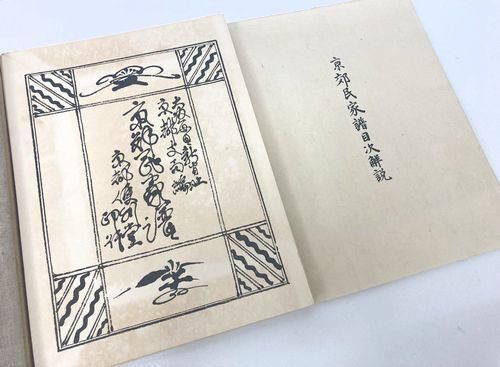 大阪毎日新聞社
京都支局編
京郊民家譜
京都便利堂
印行
京郊民家譜目次解説